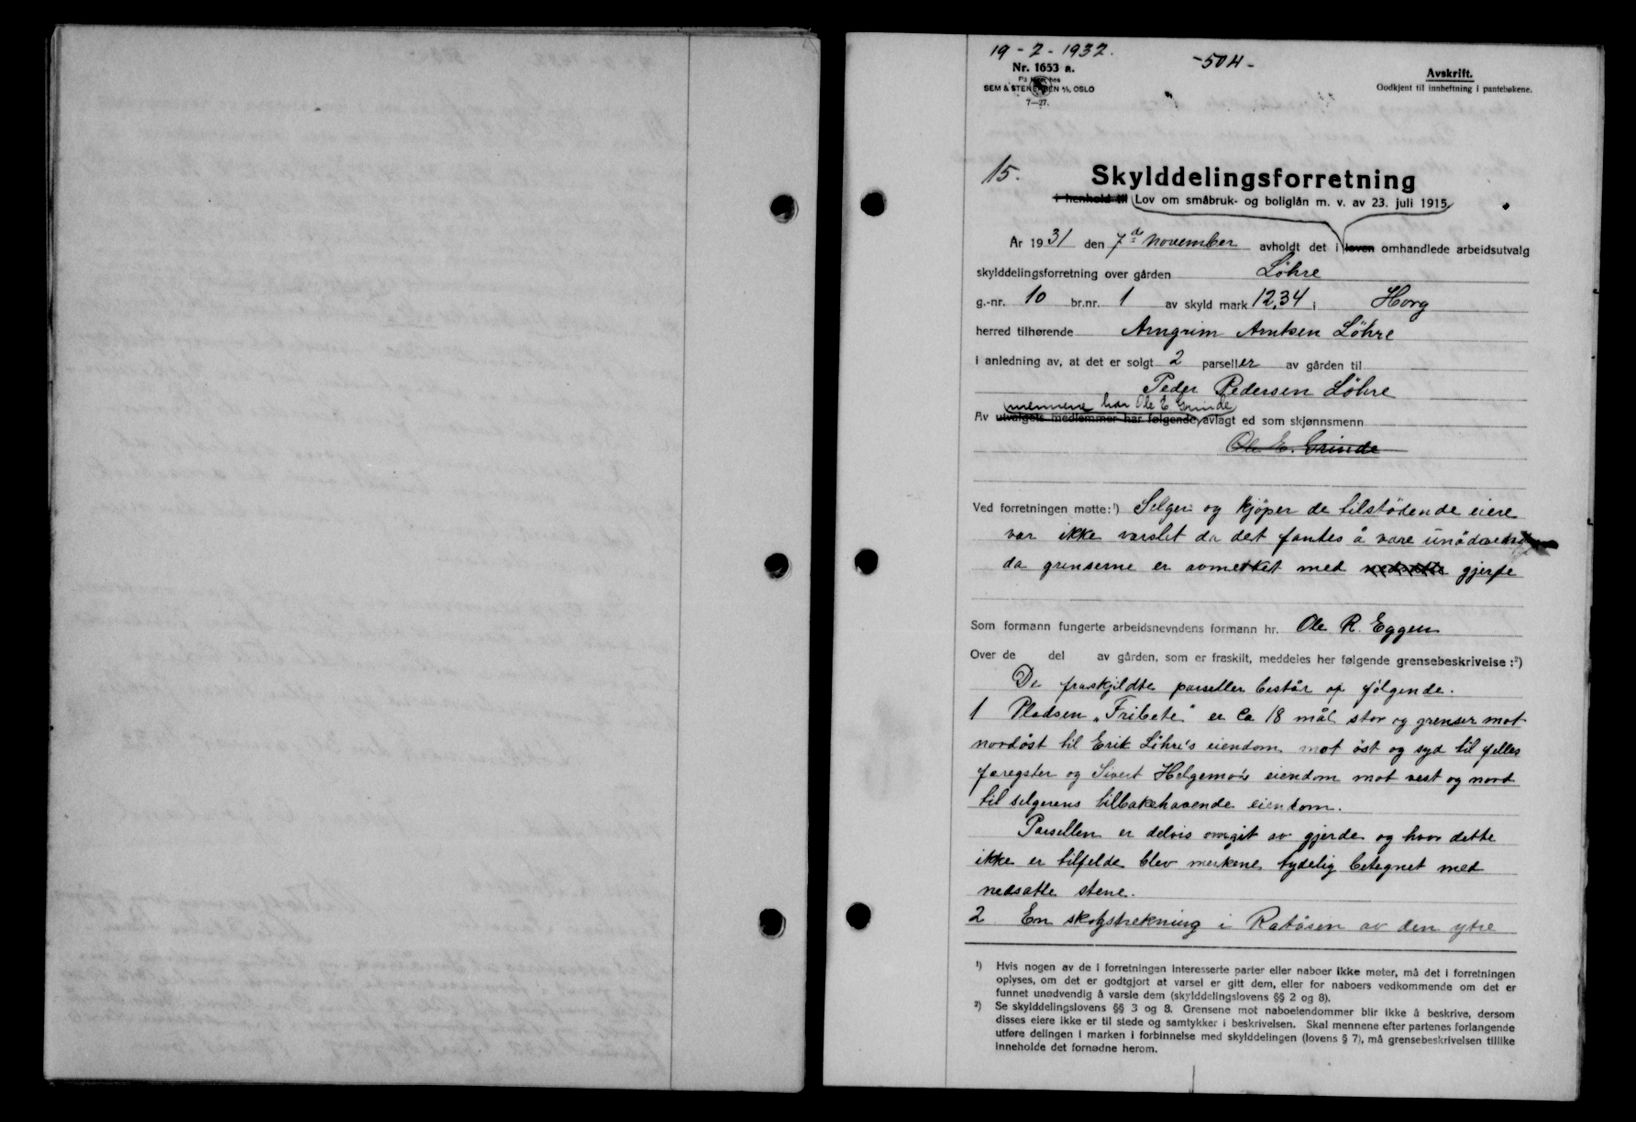 19-2-1932.
-504-
Nr. 1653 a.
SEM & STENERSEN A/S, OSLO
7—27.
Avskrift.
Godkjent til innheftning i pantebøkene.
15.
Skylddelingsforretning
i henhold til Lov om småbruk- og boliglån m. v. av 23. juli 1915
År 1931 den 7de november avholdt det i loven omhandlede arbeidsutvalg
skylddelingsforretning over gården Løhre
g.-nr. 10 br.nr. 1 av skyld mark 12,34 i Horg
herred tilhørende Arngrim Arntsen Löhre
i anledning av, at det er solgt 2 parseller av gården til
Peder Pedersen Löhre
mennene har Ole E Grinde
Av utvalgets medlemmer har følgende avlagt ed som skjønnsmenn
Ole E. Grinde
Ved forretningen møtte:¹) Selger og kjöper de tilstötende eiere
var ikke varslet da det fantes å være
da grenserne er avmerket med nedsatte gjerde
Som formann fungerte arbeidsnevndens formann hr. Ole R. Eggen
Over de del av gården, som er fraskilt, meddeles her følgende grensebeskrivelse:²)
De fraskjildte parseller består af fölgende.
1 Pladsen „Fribete" er ca 18 mål stor og grenser mot
nordöst til Erik Löhre's eiendom mot öst og syd til felles
færegster og Sivert Helgemo's eiendom mot vest og nord
til selgerens tilbakehavende eiendom.
Parsellen er delvis omgit av gjerde og hvor dette
ikke er tilfelde blev merkene tydelig betegnet med
nedsatte stene.
2 En skogstrekning i Ratåsen av den ytre
¹) Hvis nogen av de i forretningen interesserte parter eller naboer ikke møter, må det i forretningen
oplyses, om det er godtgjort at varsel er gitt dem, eller for naboers vedkommende om det er
funnet unødvendig å varsle dem (skylddelingslovens §§ 2 og 8).
²) Se skylddelingslovens §§ 3 og 8. Grensene mot naboeiendommer blir ikke å beskrive, dersom
disses eiere ikke er til stede og samtykker i beskrivelsen. Skal mennene efter partenes forlangende
utføre delingen i marken i forbinnelse med skylddelingen (lovens § 7), må grensebeskrivelsen tillike
inneholde det fornødne herom.